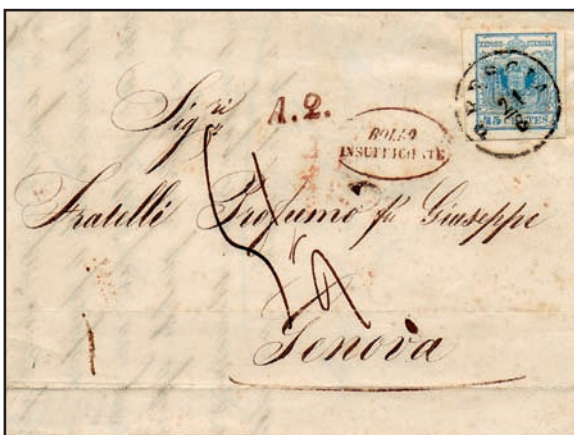 45 CENTES
BRESCIA
21
Sig.ri
A. 2.
BOLLO
INSUFFICIENTE
Fratelli Profumo fu Giuseppe
Genova